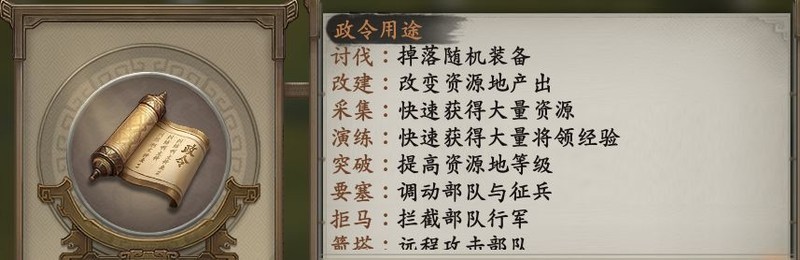 政令
政令用途
讨伐：掉落随机装备
改建：改变资源地产出
采集：快速获得大量资源
演练：快速获得大量将领经验
突破：提高资源地等级
要塞：调动部队与征兵
拒马：拦截部队行军
箭塔：远程攻击部队